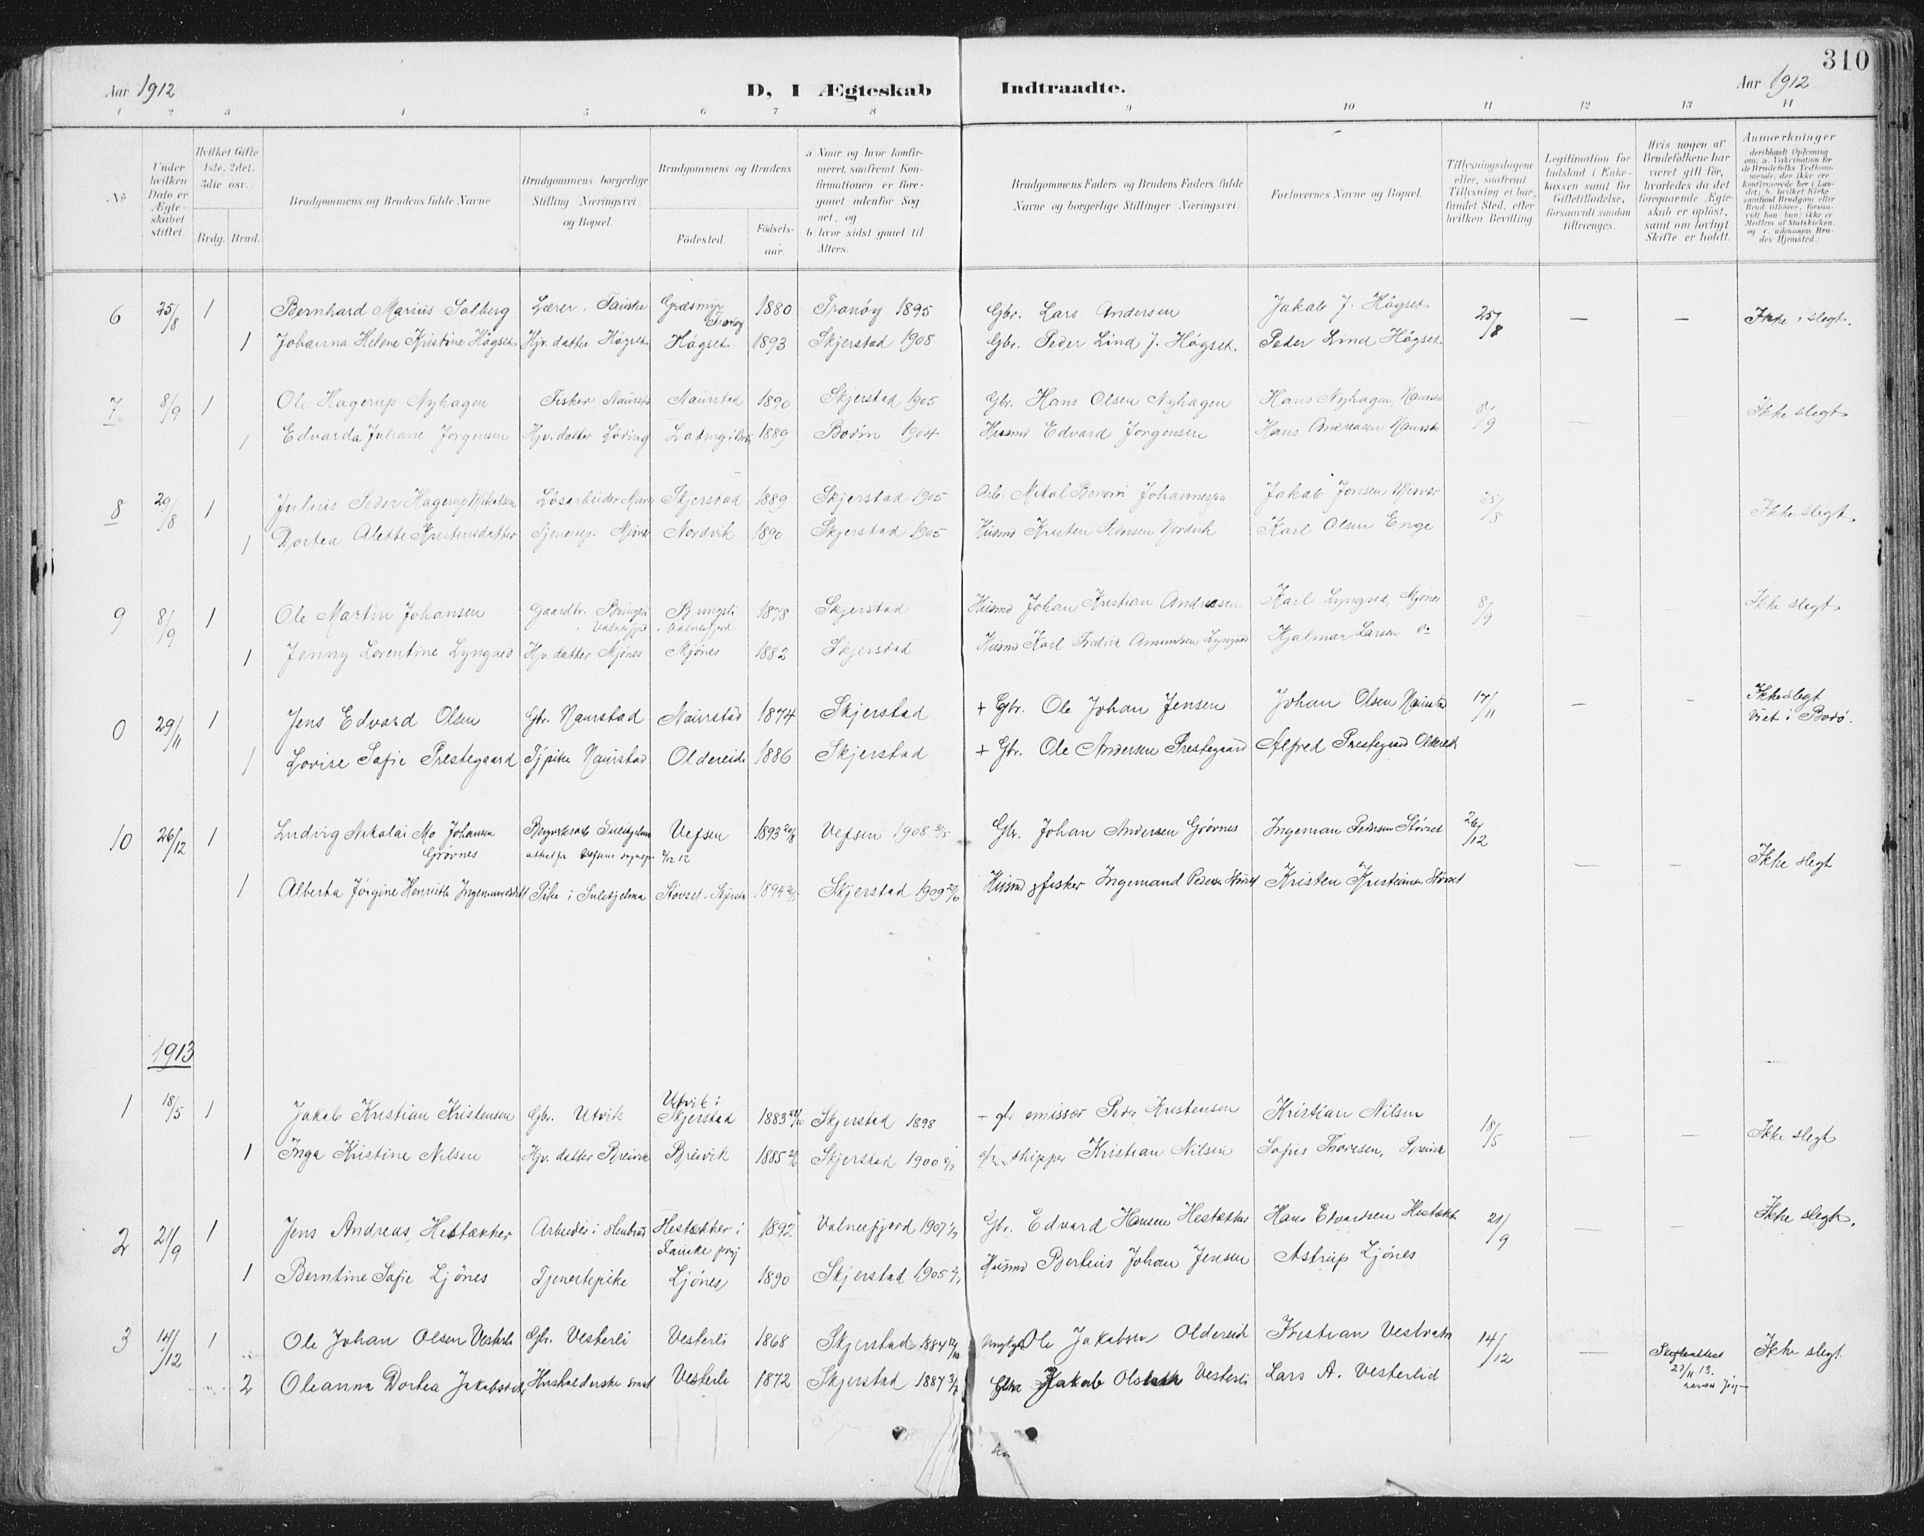 310
Aar 1912
D, I Ægteskab Indtraadte.
Aar 1912
1 2 3 4 5 6 7 8 9 10 11 12 13 14
No
Under hvilken Dato er Ægteskabet stiftet
Hvilket Gifte 1ste, 2det, 3die osv.
Brdg. Brud.
Brudgommens og Brudens fulde Navne
Brudgommens borgerlige Stilling Næringsvei og Bopæl.
Brudgommens og Brudens
Fødested.
Fødselsaar.
a Naar og hvor konfirmeret, saafremt Konfirmationen er foregaaet udenfor Sognet, og
b hvor sidst gaaet til Alters.
Brudgommens Faders og Brudens Faders fulde Navne og borgerlige Stillinger Næringsvei
Forlovernes Navne og Bopæl.
Tillysningsdagene eller, saafremt Tillysning ei har fundet Sted, efter hvilken Bevilling.
Legitimation for Indskud i Enkekassen samt for Giftetilladelse, forsaavidt saadan tiltrænges.
Hvis nogen af Brudefolkene har været gift før, hvorledes da det foregaaende Ægteskab er opløst, samt om lovligt Skifte er holdt.
Anmærkninger
6 25/8 1 Bernhard Marius Solberg Lærer, Fauske Græsmyr Tranøy 1880 Tranøy 1895 Gbr. Lars Andersen Jakob J. Høgset 25/8 — — Ikke i slegt.
1 Johanna Helene Kristine Høgset Hjv. datter Høgset Høgset 1893 Skjerstad 1908 Gbr. Peder Lind J. Høgset. Peder Lind Høgset
7 8/9 1 Ole Hagerup Nyhagen Fisker, Naurstad Naurstad 1890 Skjerstad 1905 Gbr. Hans Olsen Nyhagen Hans Nyhagen, Naurstad 8/9 — — Ikke slegt
1 Edvarda Juliane Jørgensen Hjv. datter Løding 1889 Bodin 1904 Husmd Edvard Jørgensen Hans Andreasen Naurst
8 29/8 1 Julius Peder Hagerup Nikolsen Løsarbeider Skjerstad 1889 Skjerstad 1905 Arb. Nikol Benoni Johannessen Jakob Jonsen 25/8 Ikke slegt.
1 Dortea Alette Kristensdatter Nordvik 1890 Skjerstad 1905 Husmd Kristen Nordvik Karl Olsen Enge
9 8/9 1 Ole Martin Johansen Gaardbr. Bringsli i Valnesfjord Bringsli i Valnesfjord 1878 Skjerstad Husmd Johan Kristian Andreasen Karl Lyngved, Mjønes 8/9 — — Ikke slegt.
1 Jenny Lorentine Lyngved Hjv. datter Mjønes Mjønes 1882 Skjerstad Husmd Karl Fredrik Amundsen Lyngved Hjalmar Larsen do
0 29/11 1 Jens Edvard Olsen Gbr. Naurstad Naurstad 1874 Skjerstad + Gbr. Ole Johan Jensen Johan Olsen Naurstad 17/11 — — Ikke slegt
Viet i Bodø.
1 Lovise Sofie Prestegaard Tj.pike Naurstad Oldereide 1886 Skjerstad + Gbr. Ole Andersen Prestegaard Alfred Prestegaard Oldereid
10 26/12 1 Ludvig Nikolai Mo Johansen Grøvnes Sulitjelma Vefsen 1893 20/8 Vefsen 1908 Gbr. Johan Andersen Grøvnes Ingeman Pedersen Støvset 26/12 — — Ikke slegt
1 Alberta Jørgine Henriette Ingemundsdatt Pike i Sulitjelma Støvset. 1894 Skjerstad 1909 Husmd & fisker Ingemand Pedersen Støvset Kristen Kristiansen Støvset
1913
1 18/5 1 Jakob Kristian Kristensen Gbr. Utvik Utvik i Skjerstad 1883 Skjerstad 1898 emissær Peder Kristensen Kristian Nilsen 18/5 — — Ikke slegt
1 Inga Kristine Nilsen Hjv. datter Breivik Breivik 1885 Skjerstad 1900 skipper Kristian Nilsen Sofus Thoresen, Breivik
2 21/9 1 Jens Andreas Hestækker Arbeider i Hestækker i Fauske 1892 Valnesfjord 1907 Gbr. Edvard Hansen Hestækker Hans Edvardsen Hestækk 21/9 — — Ikke slegt.
1 Berntine Sofie Ljønes Tjenestepike Ljønes 1890 Skjerstad 1905 Husmd Bertius Johan Jensen Astrup Ljønes
3 14/12 1 Ole Johan Olsen Vesterli Gbr. Vesterli Vesterli 1868 Skjerstad 1884 Ole Jakobsen Oldereid Kristian Vestvatn 14/12 — Ikke slegt
2 Oleanna Dortea Jakobsdtr Husholderske Vesterli 1872 Skjerstad 1887 Jakob Vesterli Lars A. Vesterlid